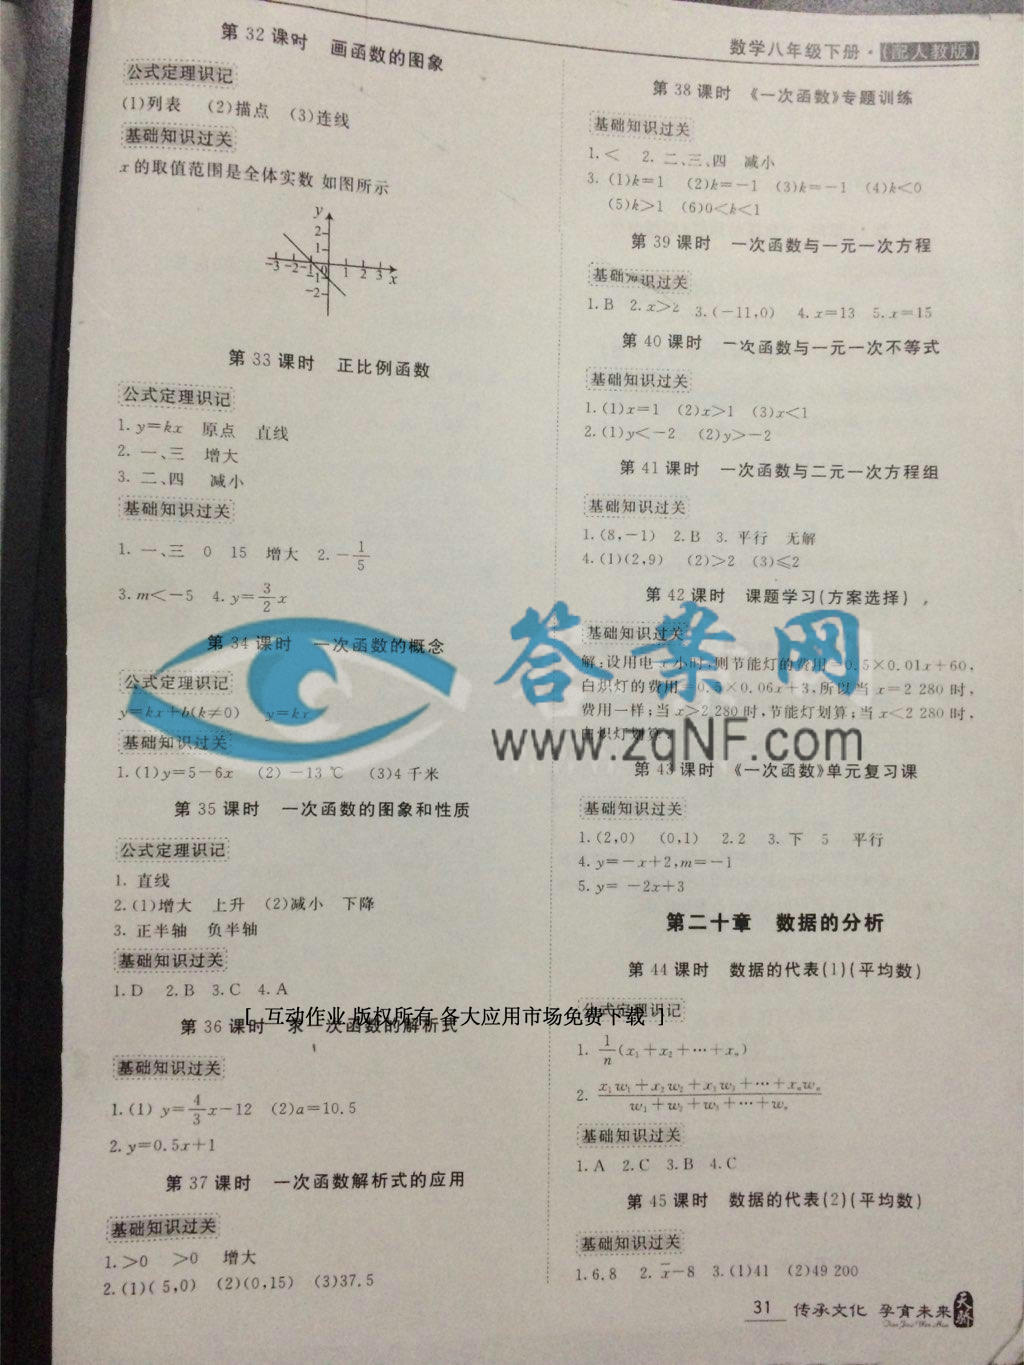 数学八年级下册·(配人教版)
第 32 课时 画函数的图象
公式定理识记
(1)列表 (2)描点 (3)连线
基础知识过关
x 的取值范围是全体实数 如图所示
y
2
1
-3 -2 -1 0 1 2 3 x
-1
-2
第 33 课时 正比例函数
公式定理识记
1. y=kx 原点 直线
2. 一、三 增大
3. 二、四 减小
基础知识过关
1. 一、三 0 15 增大 2. -1/5
3. m<-5 4. y=3/2 x
第 34 课时 一次函数的概念
公式定理识记
y=kx+b(k≠0) y=kx
基础知识过关
1. (1)y=5-6x (2)-13 ℃ (3)4 千米
第 35 课时 一次函数的图象和性质
公式定理识记
1. 直线
2. (1)增大 上升 (2)减小 下降
3. 正半轴 负半轴
基础知识过关
1. D 2. B 3. C 4. A
第 36 课时 求一次函数的解析式
基础知识过关
1. (1) y=4/3 x-12 (2)a=10.5
2. y=0.5x+1
第 37 课时 一次函数解析式的应用
基础知识过关
1. >0 >0 增大
2. (1)(5,0) (2)(0,15) (3)37.5
第 38 课时 《一次函数》专题训练
基础知识过关
1. < 2. 二、三、四 减小
3. (1)k=1 (2)k=-1 (3)k=-1 (4)k<0
(5)k>1 (6)0<k<1
第 39 课时 一次函数与一元一次方程
基础知识过关
1. B 2. x>2 3. (-11,0) 4. x=13 5. x=15
第 40 课时 一次函数与一元一次不等式
基础知识过关
1. (1)x=1 (2)x>1 (3)x<1
2. (1)y<-2 (2)y>-2
第 41 课时 一次函数与二元一次方程组
基础知识过关
1. (8,-1) 2. B 3. 平行 无解
4. (1)(2,9) (2)>2 (3)≤2
第 42 课时 课题学习(方案选择)
基础知识过关
解:设用电 x 小时,则节能灯的费用=0.5×0.01x+60,
白炽灯的费用=0.5×0.06x+3,所以当 x=2 280 时,
费用一样;当 x>2 280 时,节能灯划算;当 x<2 280 时,
白炽灯划算.
第 43 课时 《一次函数》单元复习课
基础知识过关
1. (2,0) (0,1) 2. 2 3. 下 5 平行
4. y=-x+2,m=-1
5. y= -2x+3
第二十章 数据的分析
第 44 课时 数据的代表(1)(平均数)
公式定理识记
1. 1/n(x₁+x₂+⋯+xₙ)
2. (x₁w₁+x₂w₂+x₃w₃+⋯+xₙwₙ)/(w₁+w₂+w₃+⋯+wₙ)
基础知识过关
1. A 2. C 3. B 4. C
第 45 课时 数据的代表(2)(平均数)
基础知识过关
1. 6.8 2. x̄-8 3. (1)41 (2)49 200
31 传承文化 孕育未来 天骄
答案网
www.zqNF.com
[ 互动作业 版权所有 各大应用市场免费下载 ]